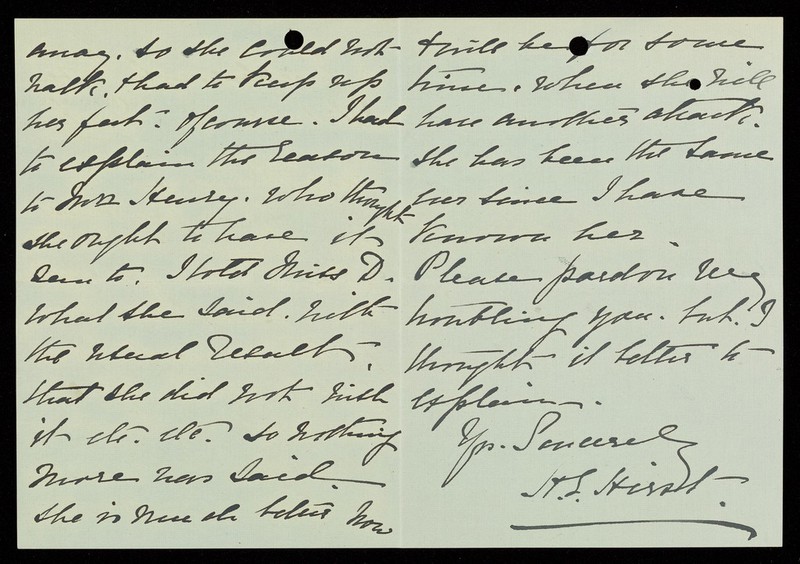 away. So she could not
walk, & had to keep up
her feet - of course. I had
to explain the reason
to Mrs Henry. who thought
she ought to have it
seen to. I told Miss D.
what she said. with
the usual result -,
that she did not wish
it etc. etc. so nothing
more was said.
She is much better now
& will be for some
time. when she will
have another attack.
She has been the same
ever since I have
known her.
Please pardon my
troubling you. but. I
thought it better to
explain -.
Yrs. Sincerely
H. S. Hirst.